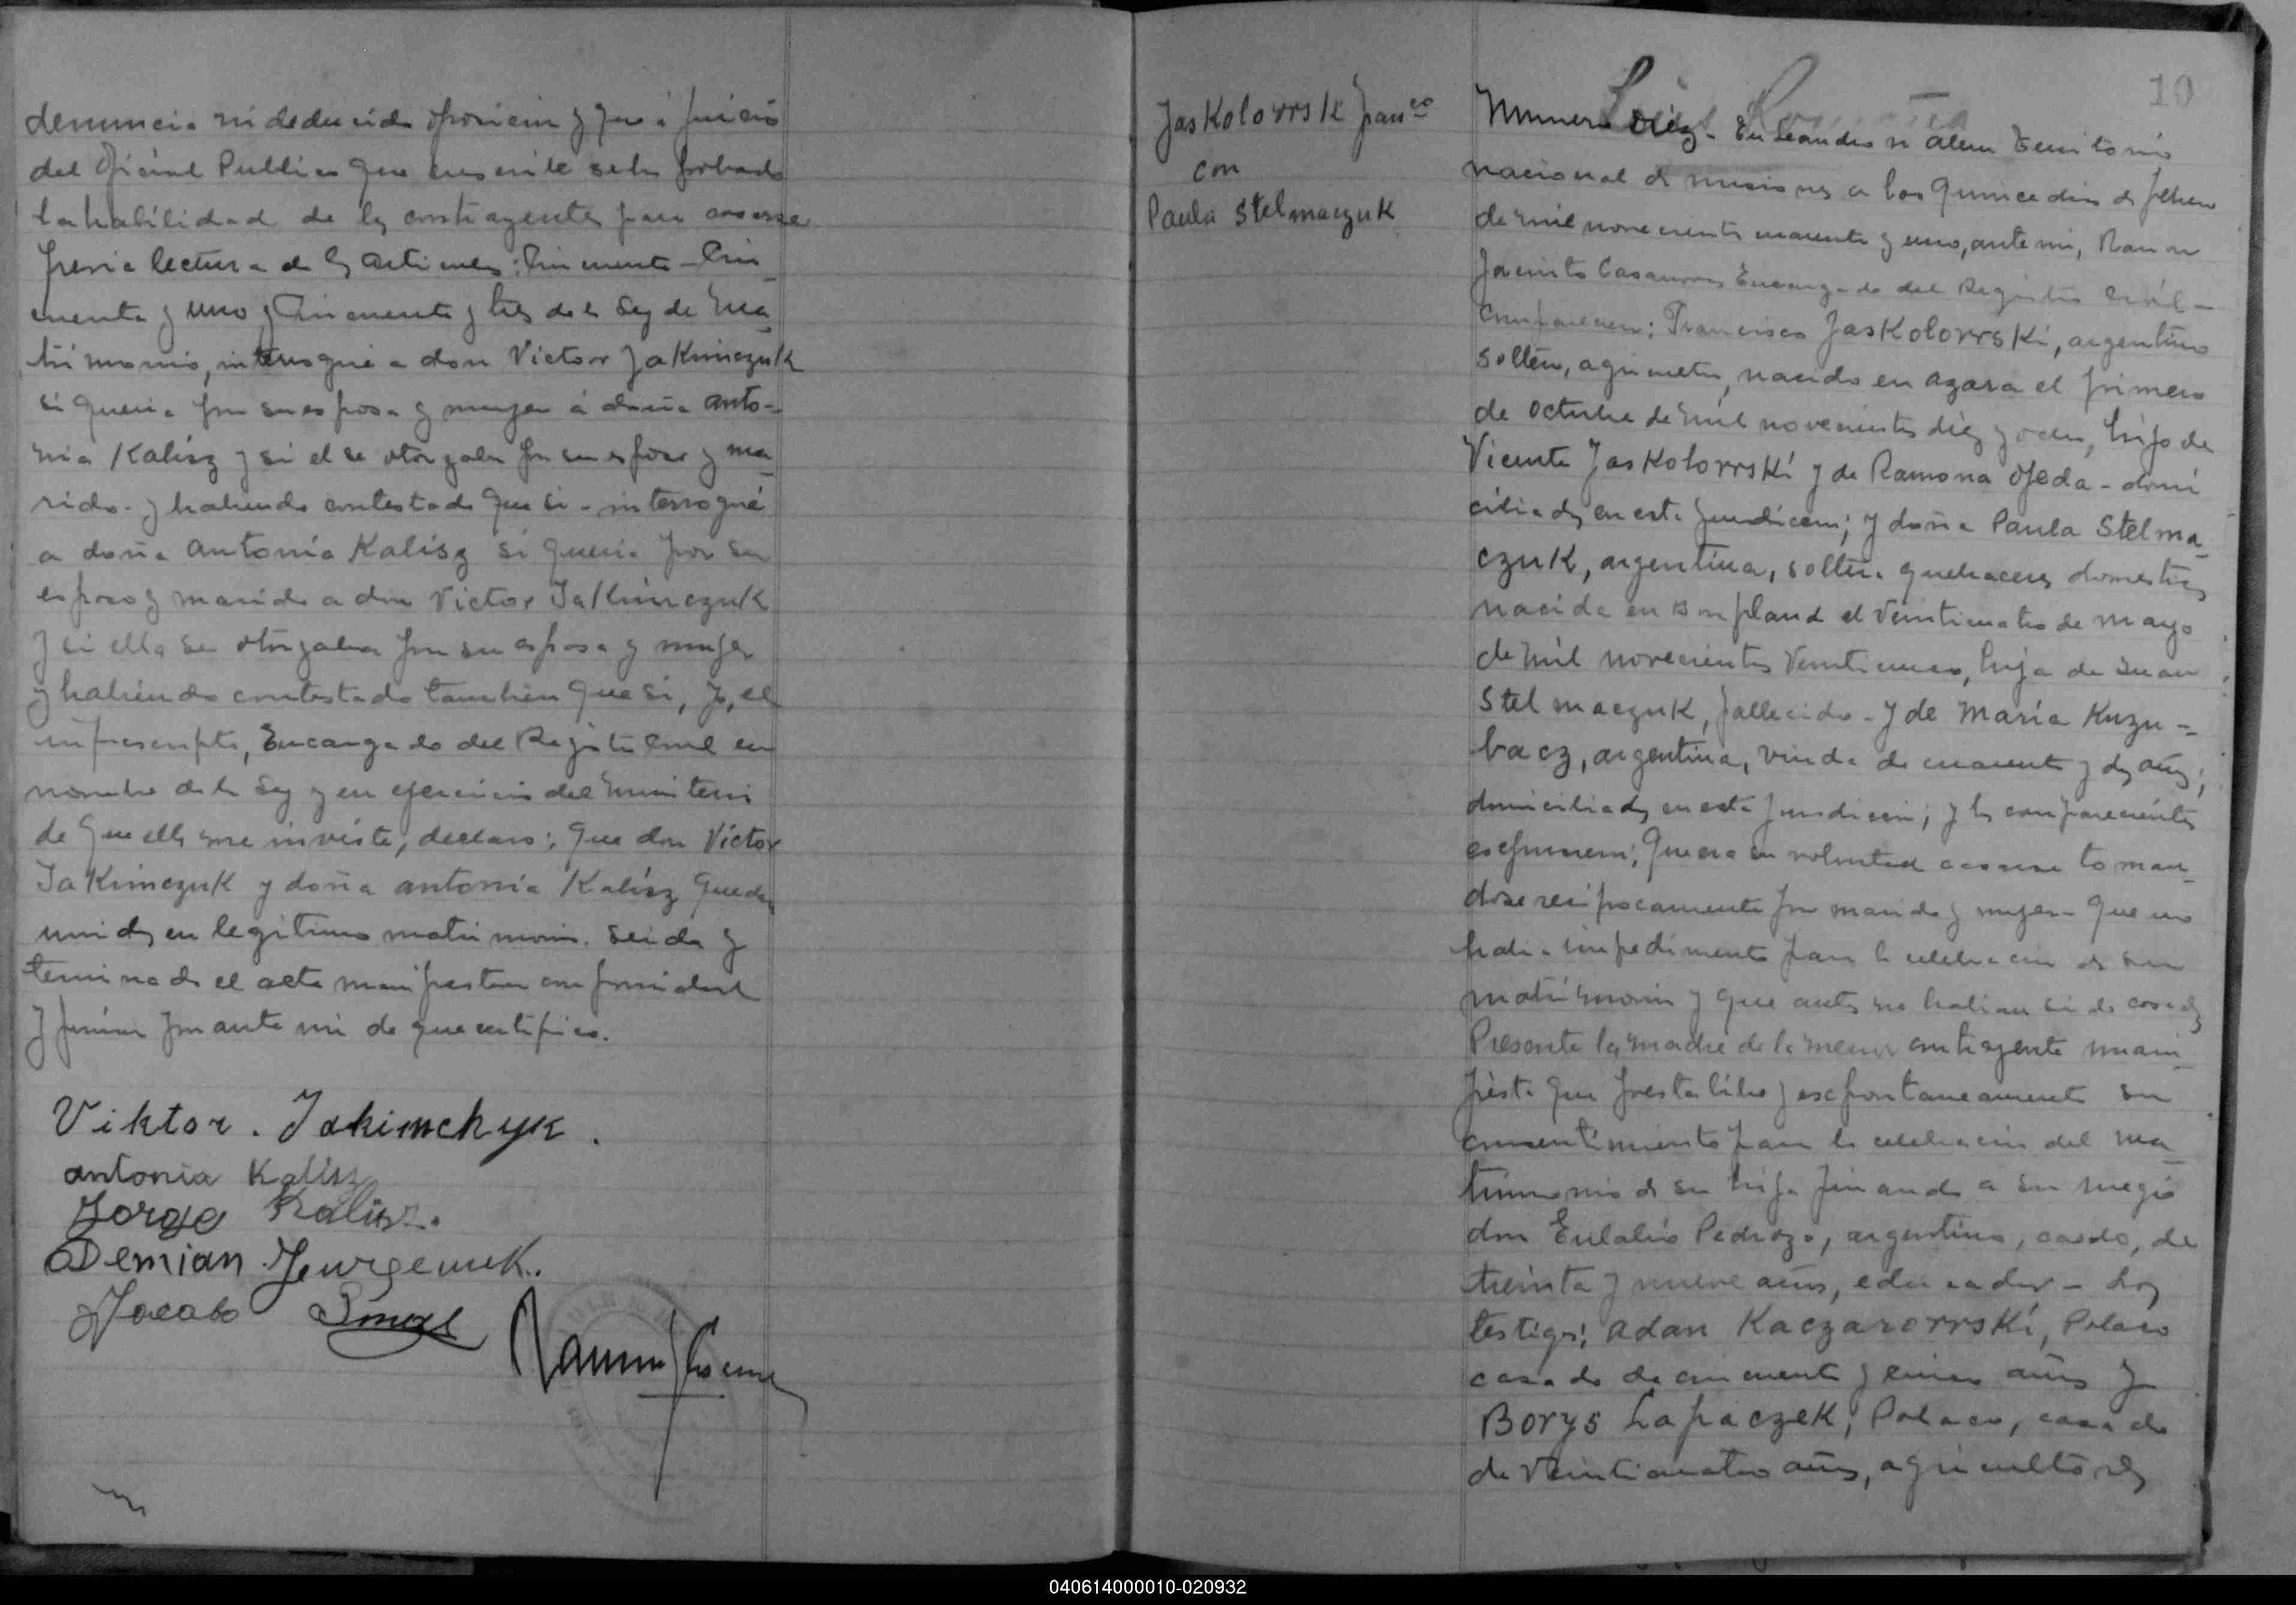 denuncia ni deducido oposicion y que a juicio
del Oficial Publico que suscribe se ha probado
la habilidad de los contrayentes para casarse
previa lectura de los articulos: Cincuenta - Cin
cuenta y uno y Cincuenta y tres de la Ley de Ma
trimonio, interrogué a don Victor Jakimczuk
si queria por su esposa y mujer á doña Anto-
nia Kalisz y si el se otorgaba por su esposo y ma
rido - y habiendo contestado que si - interrogué
a doña Antonia Kalisz si queria por su
esposo y marido a don Victor Jakimczuk
y si ella se otorgaba por su esposa y mujer
y habiendo contestado tambien que si, yo, el
infrascripto, Encargado del Registro Civil en
nombre de la Ley y en ejercicio del Ministerio
de que ella me inviste, declaro: Que don Víctor
Jakimczuk y doña Antonia Kalisz quedan
unidos en legitimo matrimonio. Leida y
terminado el acta manifestaron conformidad
y firman por ante mi de que certifico.
Viktor. Jakimchyk.
Antonia Kalisz
Jorge Kalisz.
Demian
Jacobo
10
Jaskolowski Franco
con
Paula Stelmaczuk
Numero Diez - En Leandro N Alem Territorio
nacional de Misiones a los quince dias de febrero
de mil novecientos cuarenta y uno, ante mi, Ramon
Jacinto Casanova Encargado del Registro Civil -
Comparecen: Francisco Jaskolowski, argentino
soltero, agricultor, nacido en Azara el primero
de Octubre de mil novecientos diez y ocho, hijo de
Vicente Jaskolowski y de Ramona Ojeda - domi
ciliados en esta jurisdiccion; y doña Paula Stelma
czuk, argentina, soltera quehaceres domesticos
nacida en Bonpland el Veinticuatro de Mayo
de mil novecientos Veinticinco, hija de Juan
Stelmaczuk, fallecido - y de María Kuzu-
bacz, argentina, viuda de cuarenta y dos años;
domiciliados en esta jurisdiccion; y los comparecientes
expusieron; Que era su voluntad casarse toman
dose reciprocamente por marido y mujer - Que no
habia impedimento para la celebracion de su
matrimonio y que antes no habian sido casados
Presente la madre de la menor contrayente mani
fiesta que presta libre y espontaneamente su
consentimiento para la celebracion del ma
trimonio de su hija firmando a su ruego
don Eulalio Pedrozo, argentino, casado, de
treinta y nueve años, educador - Los
testigos: Adan Kaczarowski, Polaco
casado de cincuenta y cinco años y
Borys Lapaczek, Polaco, casado
de Veinticuatro años, agricultores
040614000010-020932